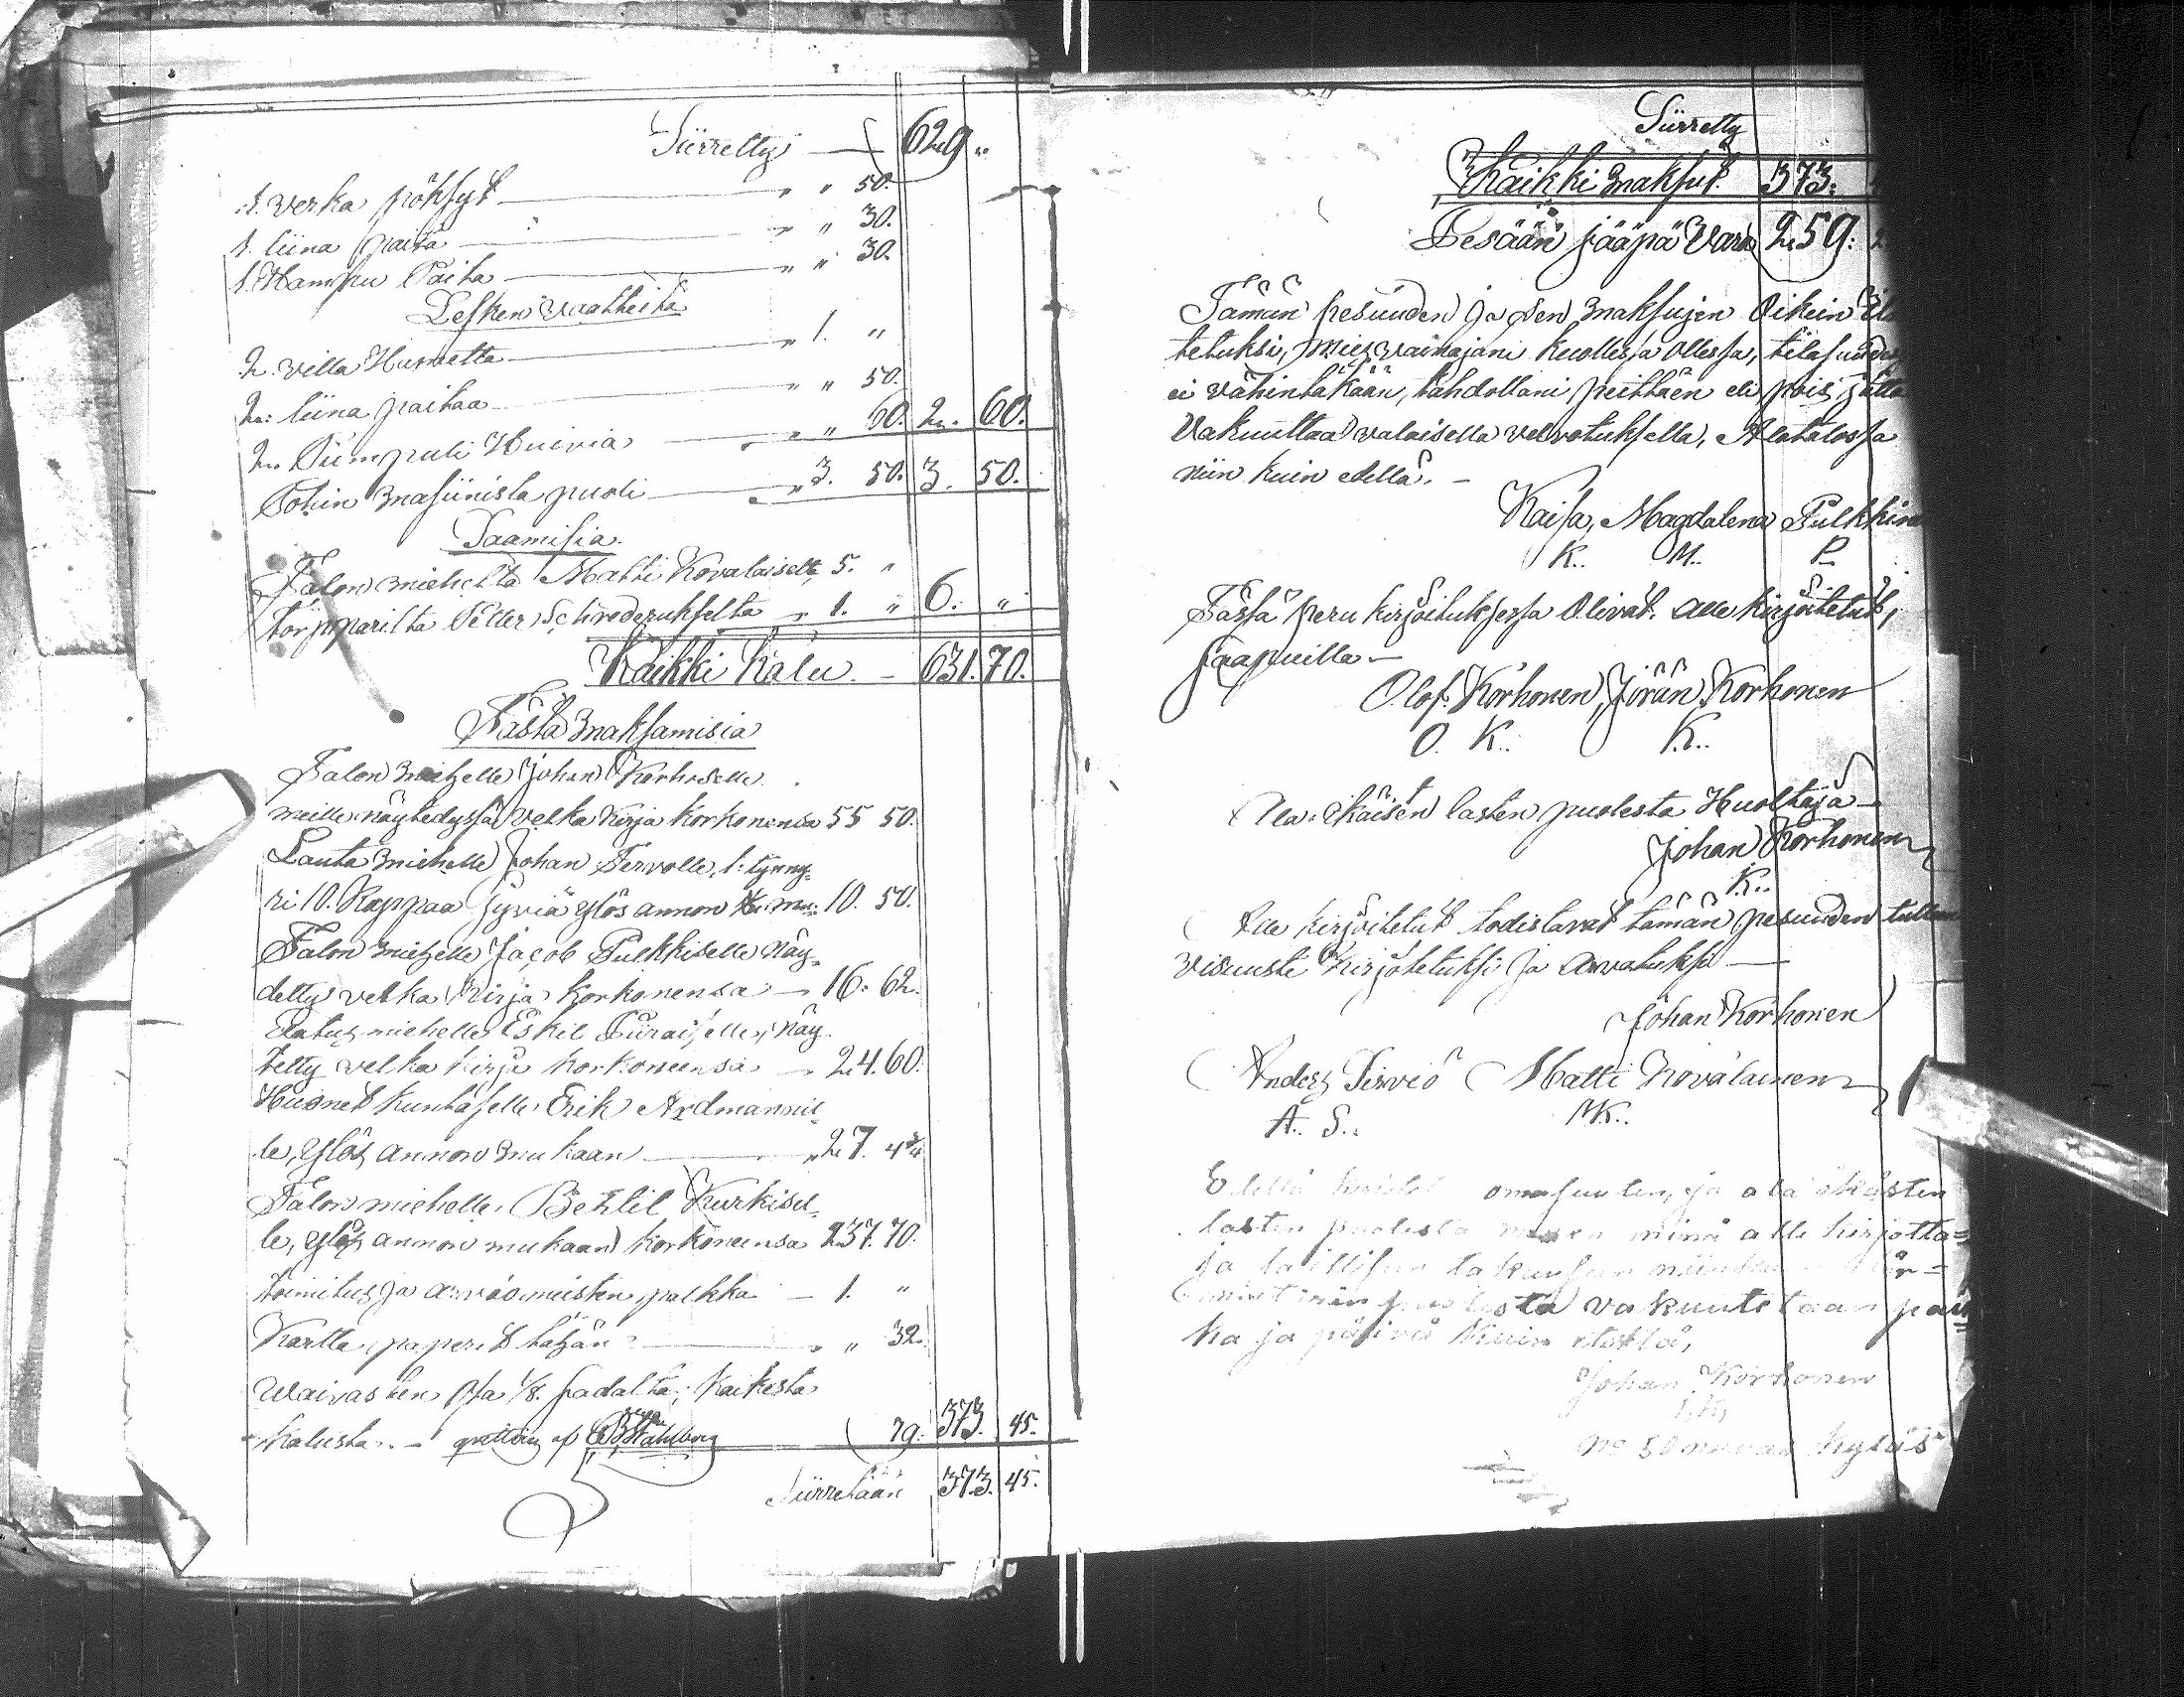 Siirretty — 629 "
1. verka pöksyt — " " 50.
1. liina paita — " " 30.
1. Hamppu Paita — " " 30.
Lesken vaatteita
2. villa Hametta — " 1. "
2: liina paitaa — " " 50.
2. Piimpuli Huivia — " " 60. 2. 60.
Pohin masiinista puoli — " 3. 50. 3. 50.
Saamisia.
Talon miehelta Matti Kovalaiselta, 5. "
torpparilta Petter Schrederukselta " 1. " 6. "
Kaikki Kalu — 631. 70.
Tästä maksamisia
Talon miehelle Johan Korhoselle
meille näytedyssä velka kirja korkonensa 55 50.
Lauta miehelle Johan Tervolle, 1: tynny-
ri 10. Kappaa Jyviä ylös annon mu: 10. 50.
Talon miehelle Jacob Pulkkiselle näy-
detty velka kirja korkonensa — 16. 62.
Elatus miehelle Eskil Piiraiselle, näy-
tetty velka kirja korkoneensa — 24. 60.
Huonet kuntaselle Erik Ardmannil-
le, ylös annon mukaan — " 27. 4 3/4
Talon miehelle Bertil Kurkisel-
le, ylös annon mukaan korkoneensa 237. 70.
toimitus ja arvio miesten palkka — 1. "
Kartta paperit tähän — " " 32.
Waivasten Osa 1/8. sadalta, kaikesta
kalusta. — qvitteras af Wahlberg 79. 373. 45.
Siirretään 373. 45.
Siirretty
Kaikki maksut. 373:
Pesään jääpä Vara 259:
Tämän pesuuden ja sen maksujen Oikein
tetuksi, mies vainajani kuollessa ollessa, tilasuudes
ei vähintäkään, tahdollani peittäen eli pois jättä
Vakuuttaa valaisella velvotuksella, Alatalossa
niin kuin edellä. —
Kaisa, Magdalena Pulkkine
K.. M.. P..
Tässä peru kirjoituksessa Olivat alle kirjoitetut,
saapuilla —
Olof Korhonen, Jörän Korhonen
O. K.. K..
Ala-ikäisen lasten puolesta Huoltaja —
Johan Korhonen
K..
Alle kirjoitetut todistavat tämän pesuuden tullen
visuusti kirjotetuksi ja arvatuksi —
Johan Korhonen
Anders Sirviö Matti Kovalainen
A.. S.. M.K..
Edellä omasuuten, ja ala ikäisten
lasten puolesta minä alle kirjotta=
ja laillisen takausen
puolesta vakuutetaan pai
ka ja päivä kuin etellä,
Johan Korhonen
No 5 kylas